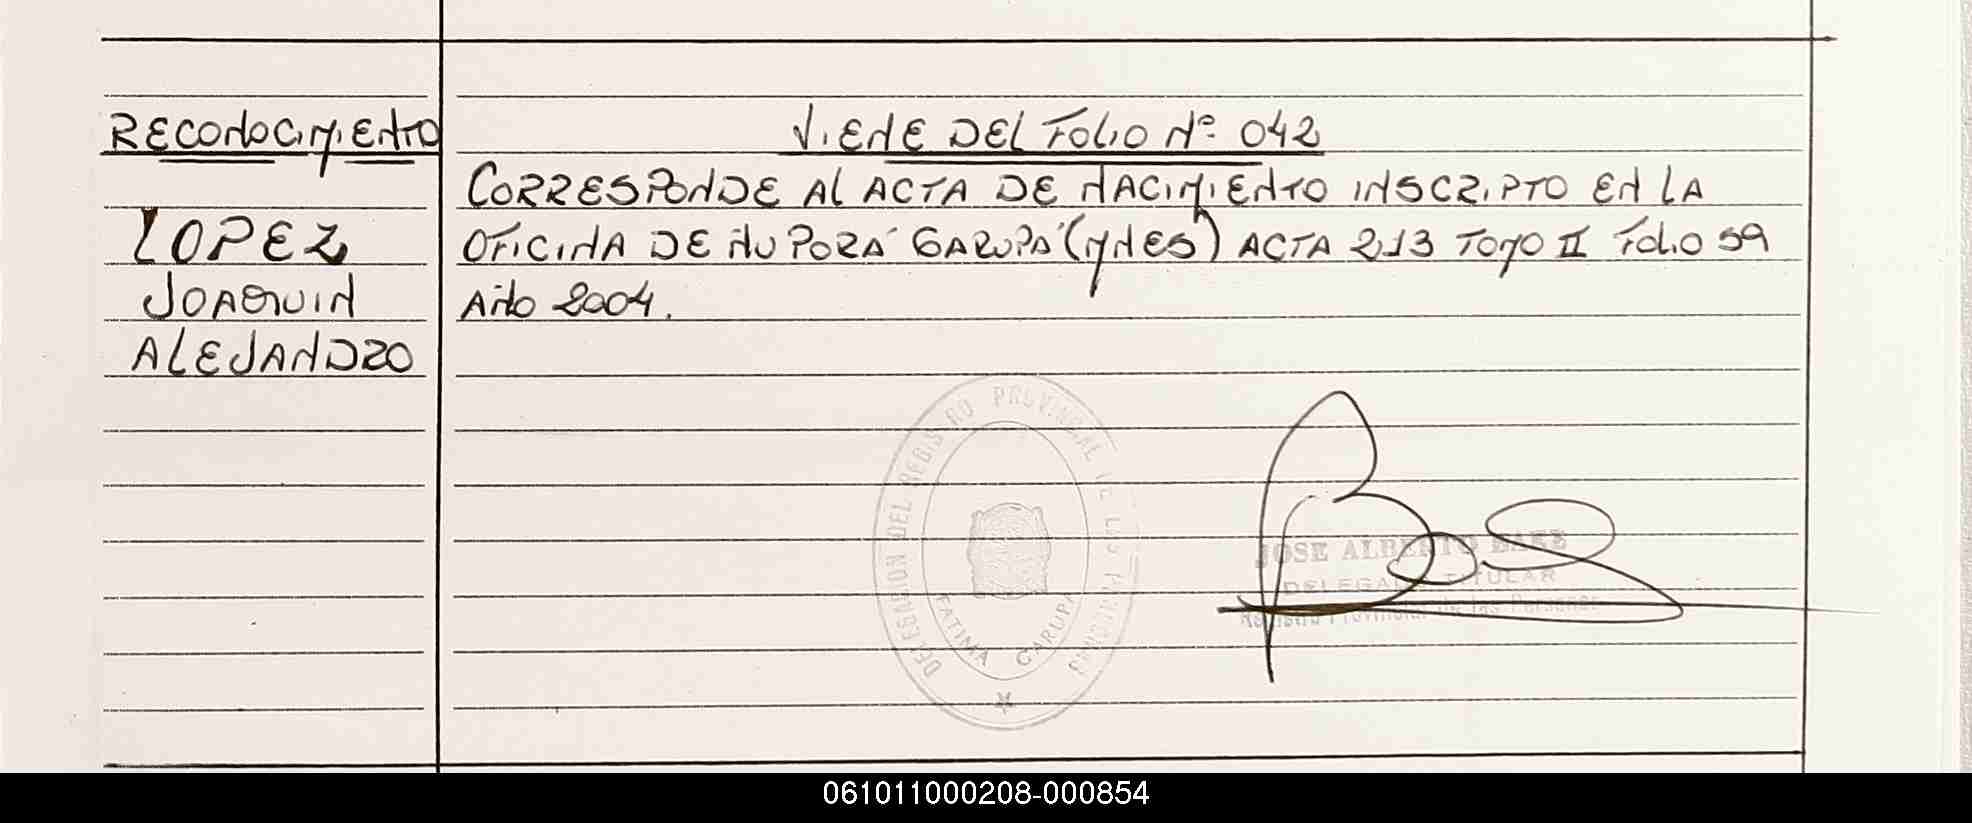 RECONOCIMIENTO
LOPEZ
JOAQUIN
ALEJANDRO
VIENE DEL FOLIO Nº 042
CORRESPONDE AL ACTA DE NACIMIENTO INSCRIPTO EN LA
OFICINA DE ÑU PORÁ GARUPÁ (MNES) ACTA 213 TOMO II FOLIO 59
AÑO 2004.
DELEGACION DEL REGISTRO PROVINCIAL DE LAS PERSONAS
FATIMA GARUPA
JOSE ALBERTO BAEZ
DELEGADO TITULAR
Registro Provincial de las Personas
061011000208-000854